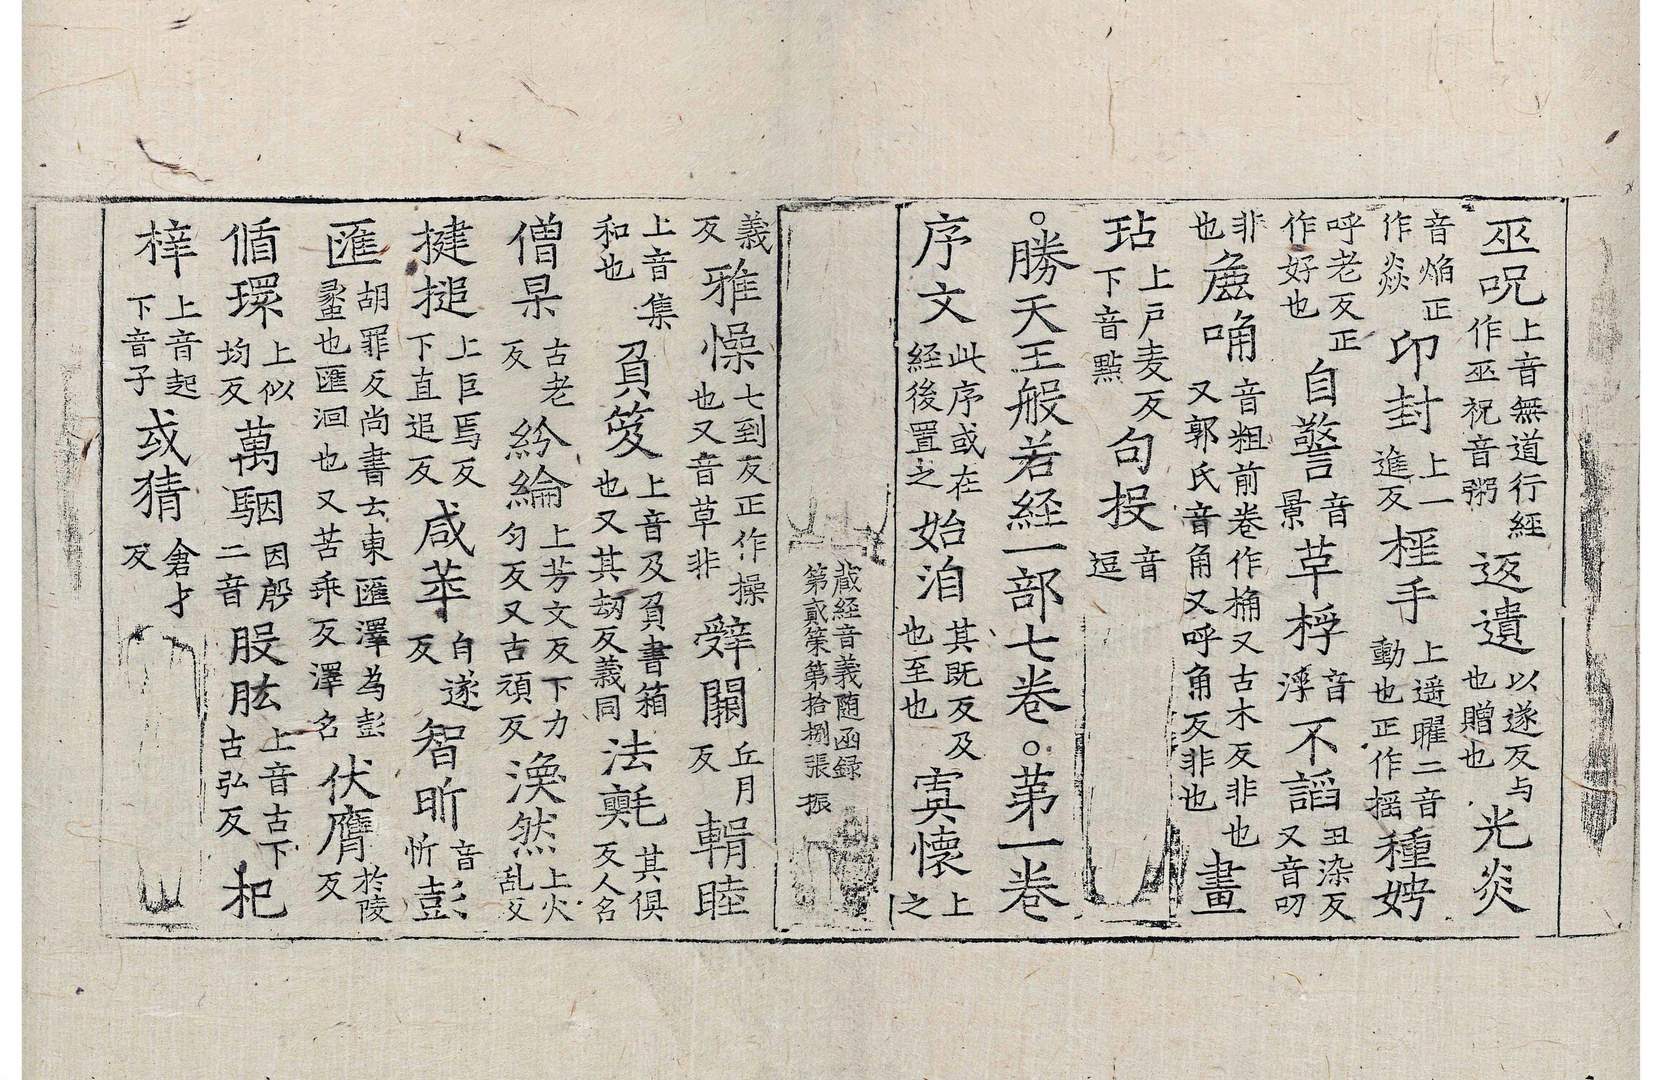 巫呪上音無道行經作巫祝音粥返遺以遂反与也贈也光炎
音焔正作焱印封上一進反桎手上遥曜二音動也正作摇種娉
呼老反正作好也自警音景草桴音浮不謟丑染反又音叨
非也麁唃音粗前卷作桷又古木反非也又郭氏音角又呼角反非也畫
玷上戸麦反下音點句投音逗
。勝天王般若経一部七卷。苐一卷
序文此序或在経後置之始洎其既反及也至也寘懷上之
蔵経音義随函録
第貳筞第拾捌張 振
義反雅懆七到反正作操也又音草非辤闋丘月反輯睦
上音集和也負笈上音及負書箱也又其刼反義同法氀其俱反人名
僧杲古老反紛綸上芳文反下力匀反又古頑反渙然上火乱反
揵搥上巨焉反下直追反咸萃自遂反智昕音忻彭
匯胡罪反尚書云東匯澤為彭蠡也匯洄也又苦乖反澤名伏膺於陵反
循環上似均反萬駰因殷二音股肱上音古下古弘反杞
梓上音起下音子或猜倉才反